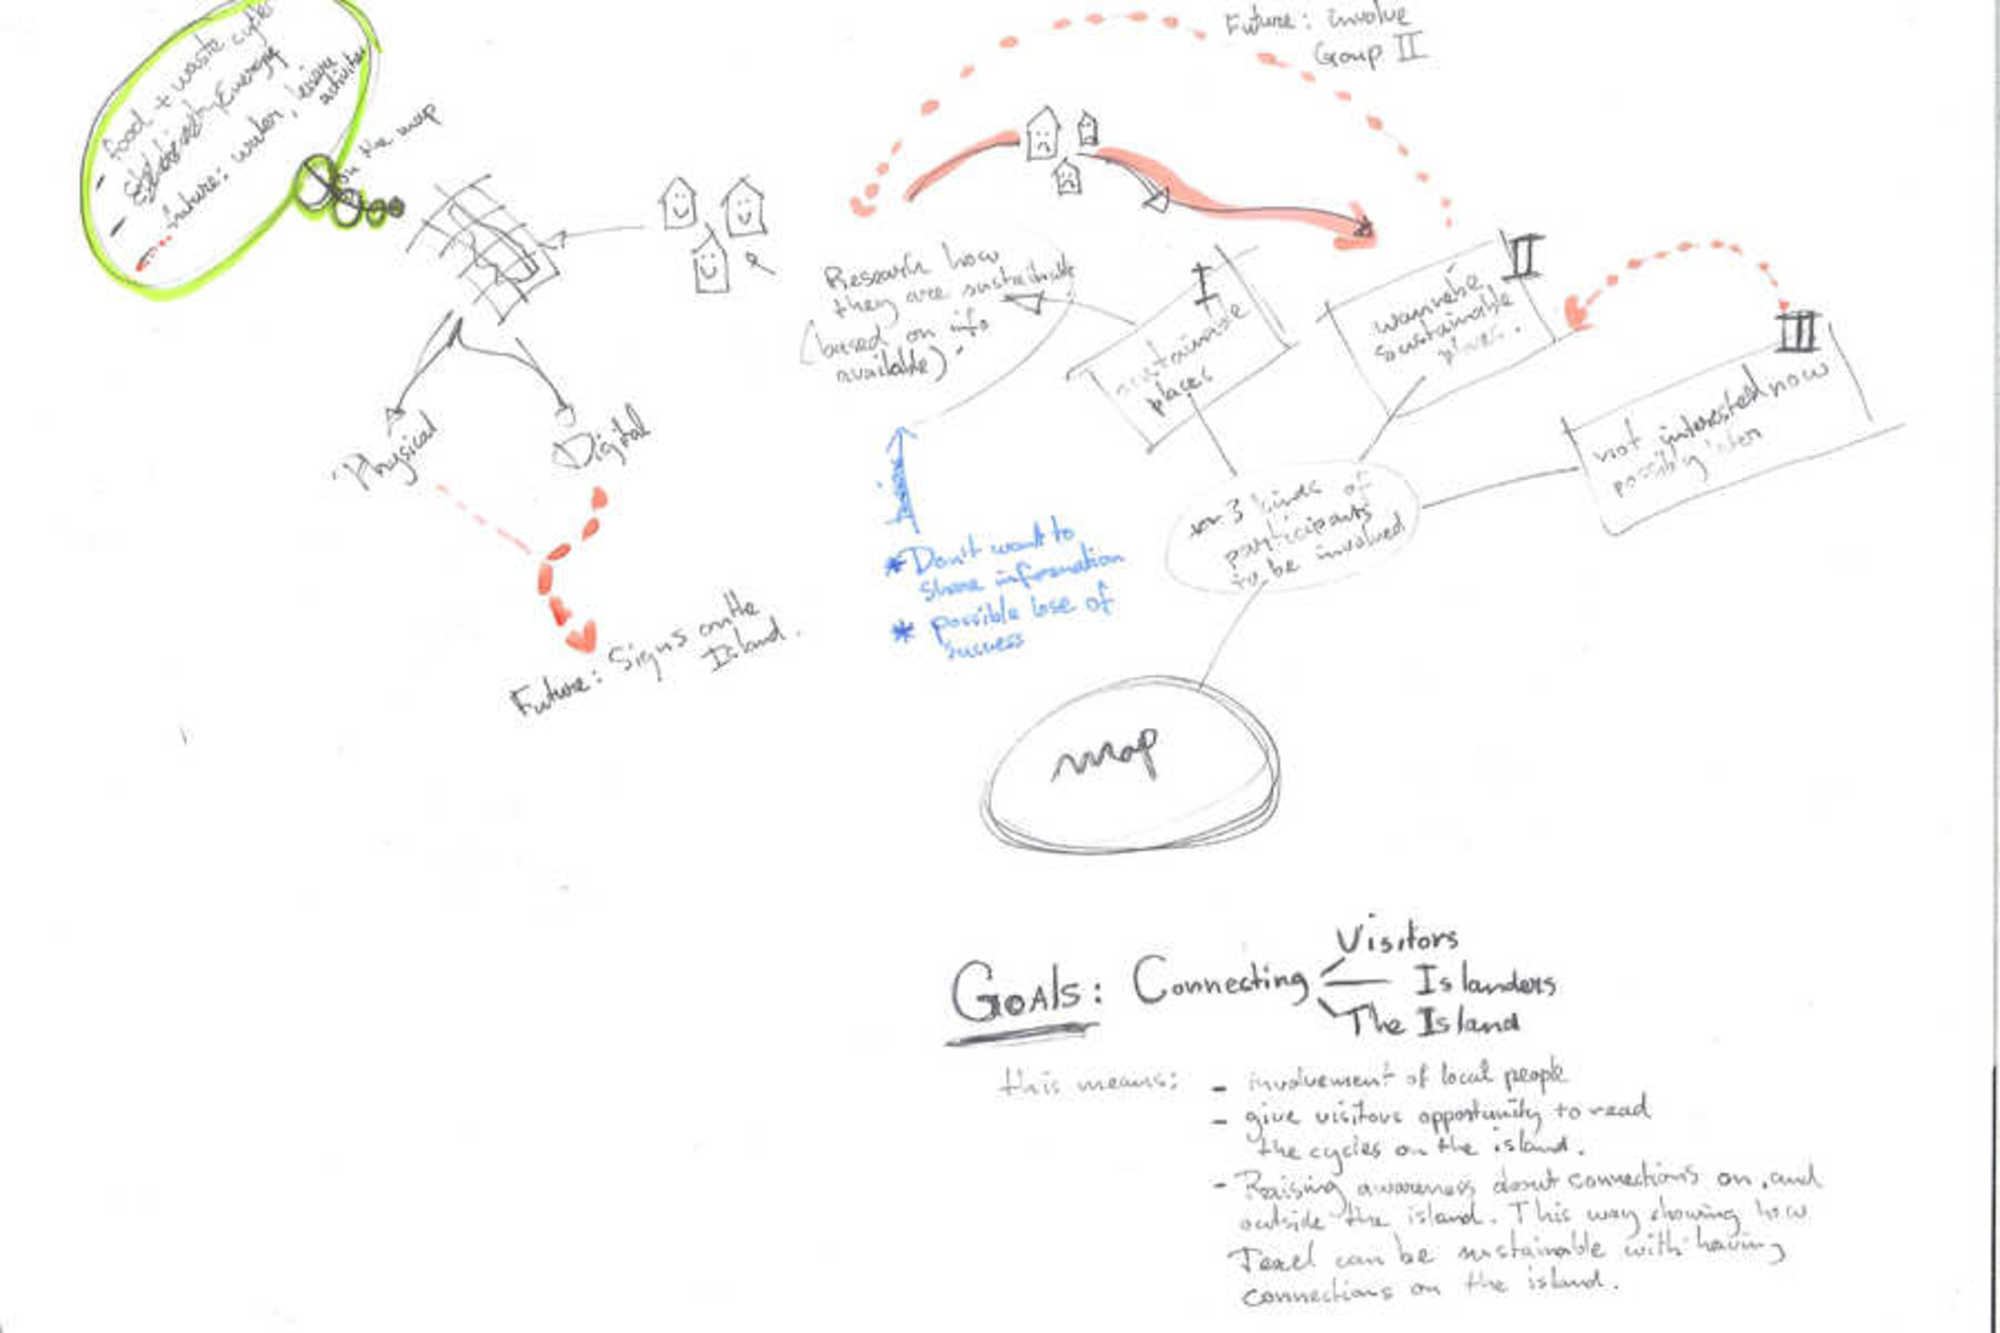 - food + waste cycle
- Energy
... future: water, leisure
activities
on the map
Physical
Digital
Future: Signs on the
Island.
Future: involve
Group II
Research how
they are sustainable
(based on info
available).
I
sustainable
places
II
wannabe
sustainable
places.
III
not interested now
possibly later
3 kinds of
participants
to be involved
* Don't want to
share information
* possible lose of
busness
map
GOALS: Connecting
Visitors
Islanders
The Island
this means:
- involvement of local people
- give visitors opportunity to read
the cycles on the island.
- Raising awareness about connections on, and
outside the island. This way showing how
Texel can be sustainable with having
connections on the island.